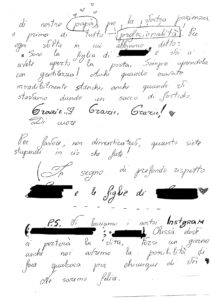 di nostro proprio per la vostra pazienza
e prima di tutto professionalità! Per
ogni volta in cui abbiamo detto:
"Sono la figlia di e ci
avete aperto la porta. Sempre aprendola
con gentilezza! Anche quando eravate
incredibilmente stanchi, anche quando vi
stavamo dando un sacco di fastidio.
Grazie! Grazie. Grazie!
Di cuore
Per favore, non dimenticatevi, quanto siete
stupendi in ciò che fate!
In segno di profondo rispetto
e le figlie di
P.S. Vi lasciamo i nostri Instagram
Chissà dove
ci porterà la vita, forse un giorno
anche noi avremo la possibilità di
fare qualcosa per chiunque di voi.
Ne saremo felici.